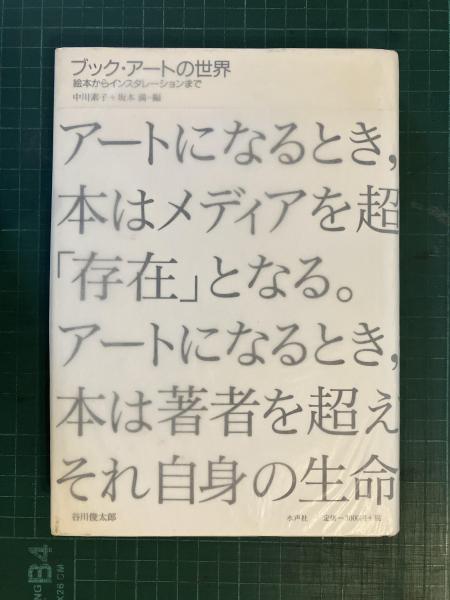 ブック・アートの世界
絵本からインスタレーションまで
中川素子+坂本 満=編
アートになるとき,
本はメディアを超
「存在」となる。
アートになるとき,
本は著者を超え
それ自身の生命
谷川俊太郎
水声社 定価=3000円+税
B4